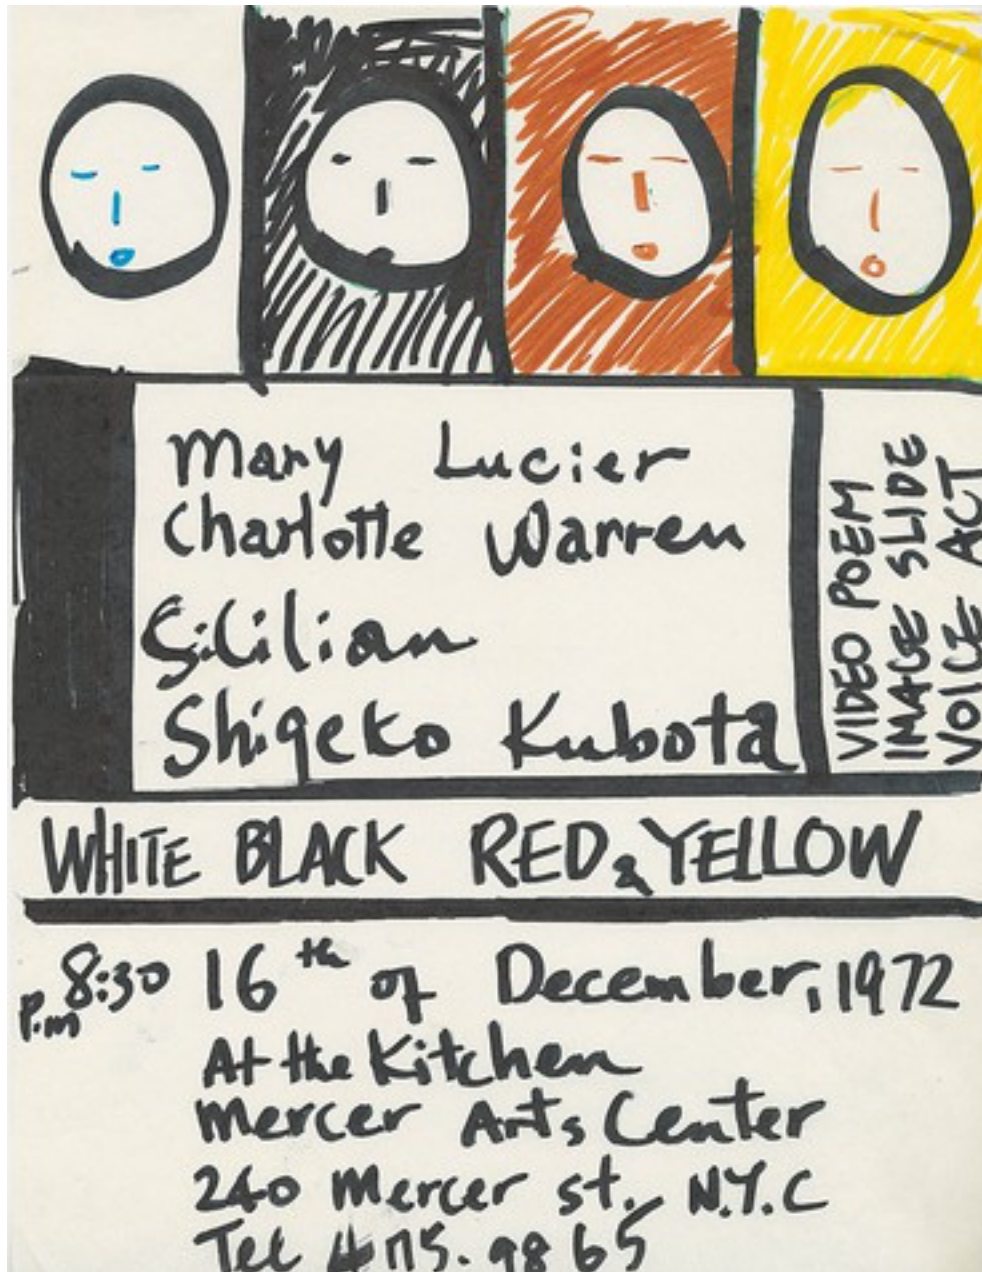 Mary Lucier
Charlotte Warren
Cicilian
Shigeko Kubota
VIDEO POEM
IMAGE SLIDE
VOICE ACT
WHITE BLACK RED & YELLOW
8:30 p.m 16th of December, 1972
At the Kitchen
Mercer Arts Center
240 Mercer st. N.Y.C
Tel 475-9865